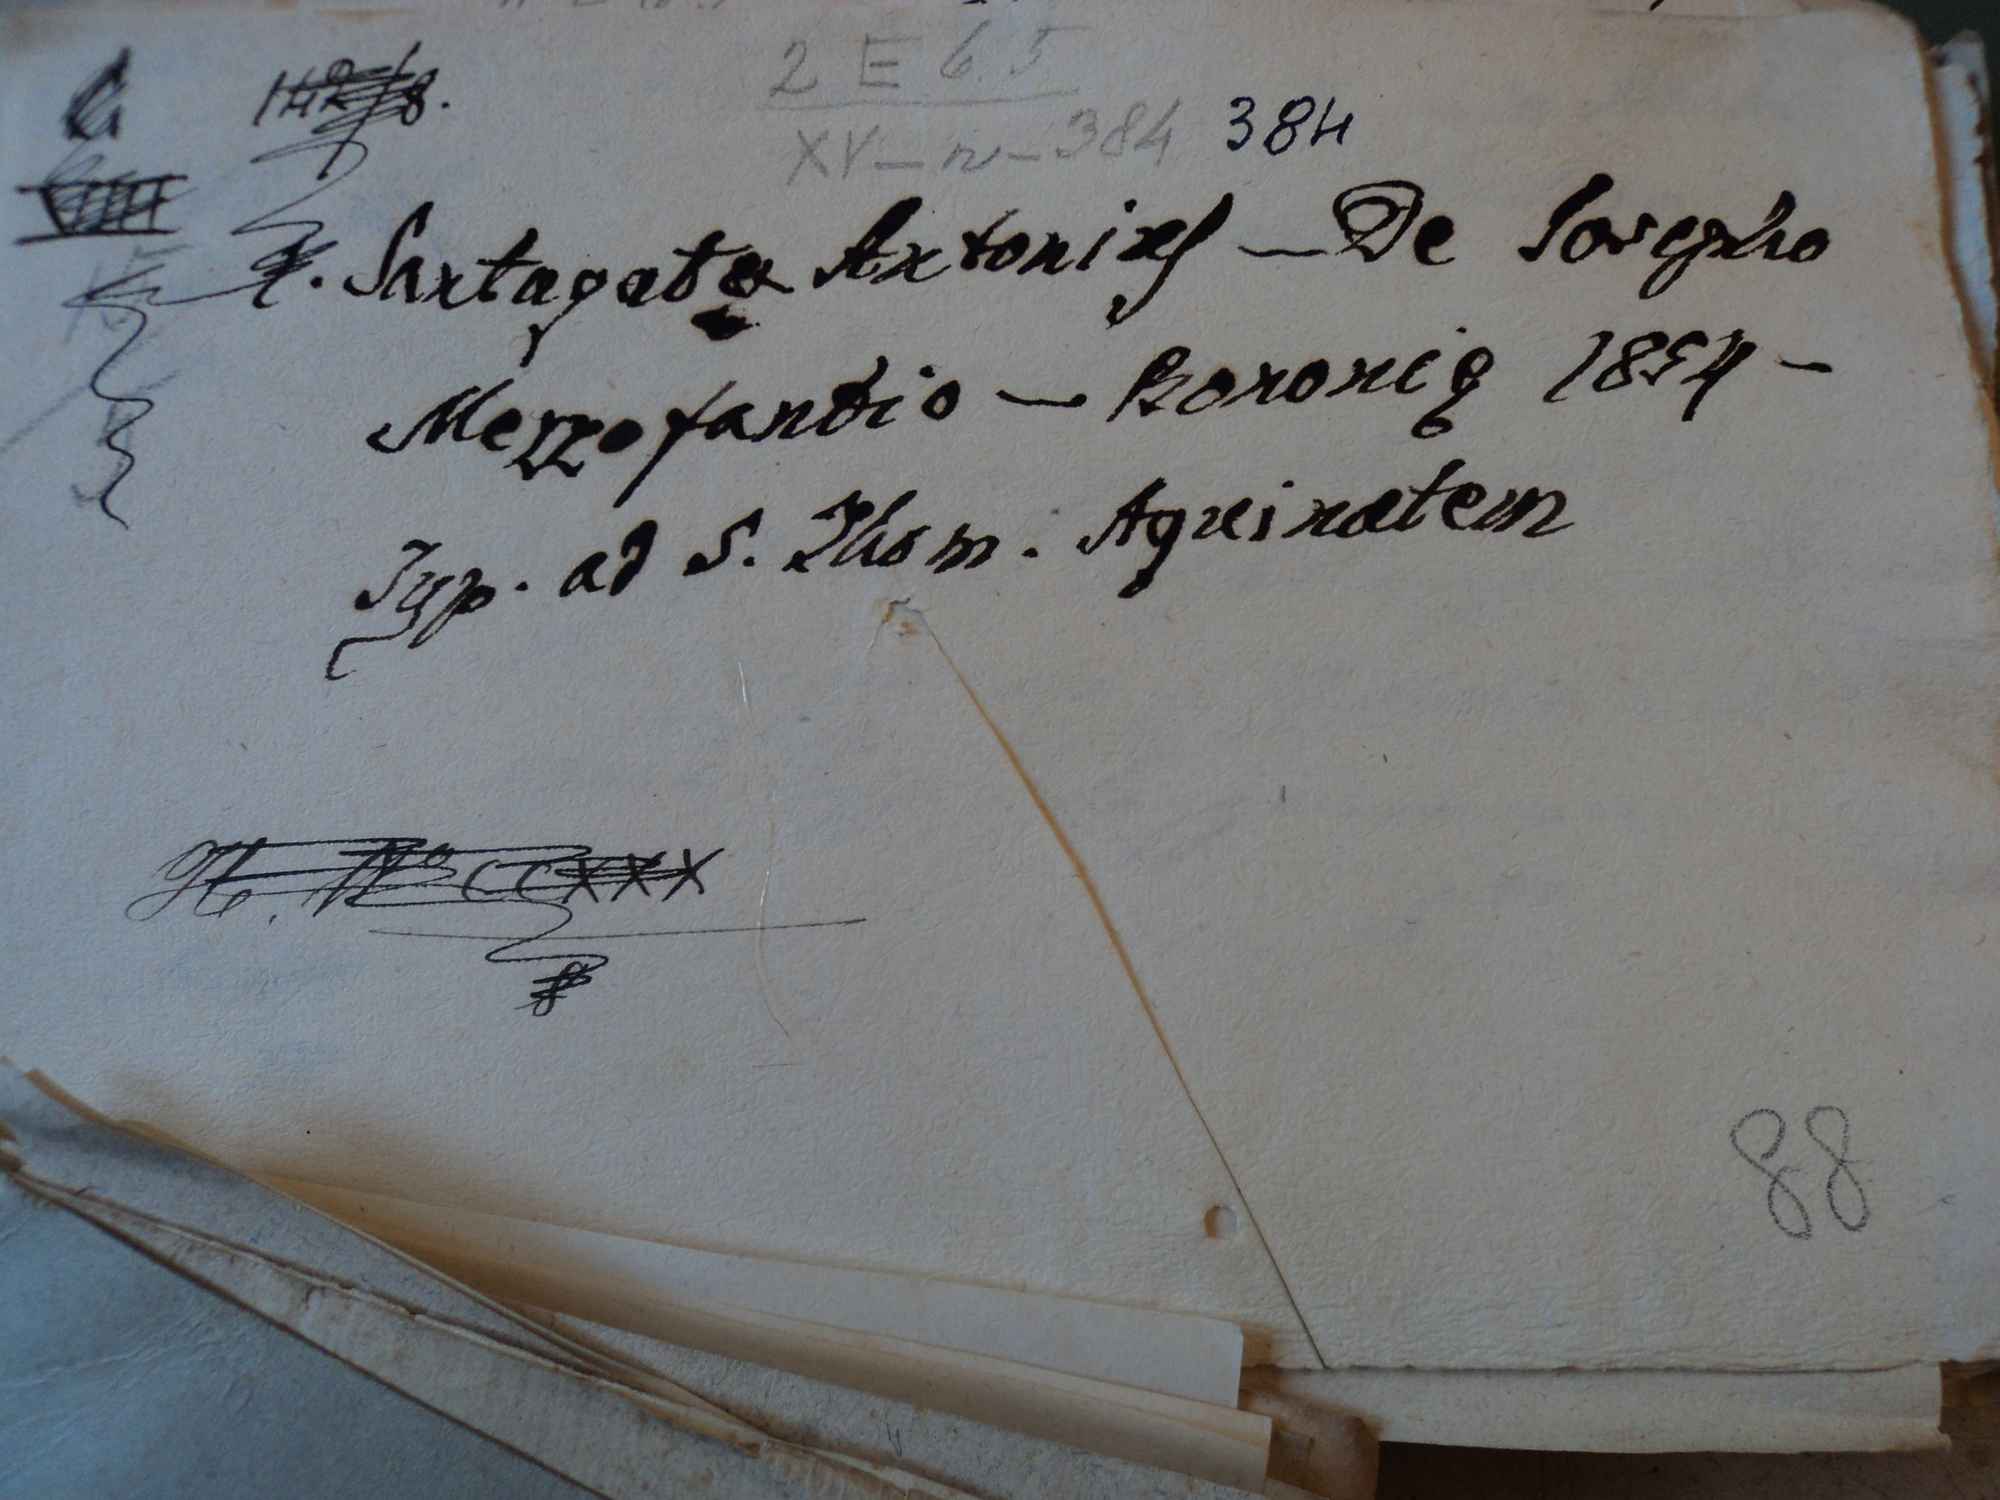 2 E 6.5
XV-n-384 384
Santagata Antonius - De Iosepho
Mezzofantio - Bononię 1854 -
Typ. ad S. Thom. Aquinatem
H. N° CCXXX
88